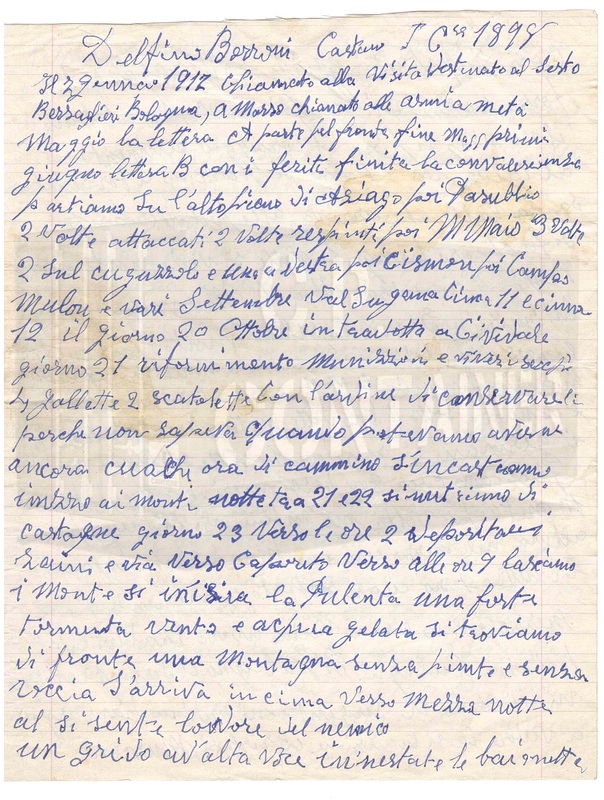 Delfino Borroni Castano I Cra 1898
Il 29 gennaio 1917 chiamato alla Visita destinato al Sesto
Bersaglieri Bologna, a Marzo chiamato alle armi a metà
Maggio la lettera A parte pel fronte, fine Magg primi
giugno lettera B con i feriti finita la convalescienza
partiamo Su l'altopiano di Asiago poi Pasubbio
2 Volte attaccati 2 Volte respinti, poi M Maio 3 Volte
2 Sul cuguzzolo e una a destra poi Cismon, poi Campo
Mulou e vari Settembre Val Sugana Cima 11 e cima
12 il giorno 20 Ottobre in tradotta a Cividale
giorno 21 rifornimento Munizzioni e viveri secchi
4 gallette 2 scatolette con l'ordine di conservarli
perche non sapeva quando potevamo averne
ancora cualche ora di cammino S'incastriamo
in mezzo ai monti notte tra 21 e 22 si nutriamo di
castagne giorno 23 Verso le ore 2 depositare i
zaini e via Verso Caporeto Verso alle ore 9 lasciamo
i Monte si inisia la Pulenta una forte
tormenta vento e acqua gelata si troviamo
di fronte una Montagna senza piante e senza
roccia S'arriva in cima Verso Mezza notte
al si sente l'odore del nemico
un grido ad alta voce innestate le baionette